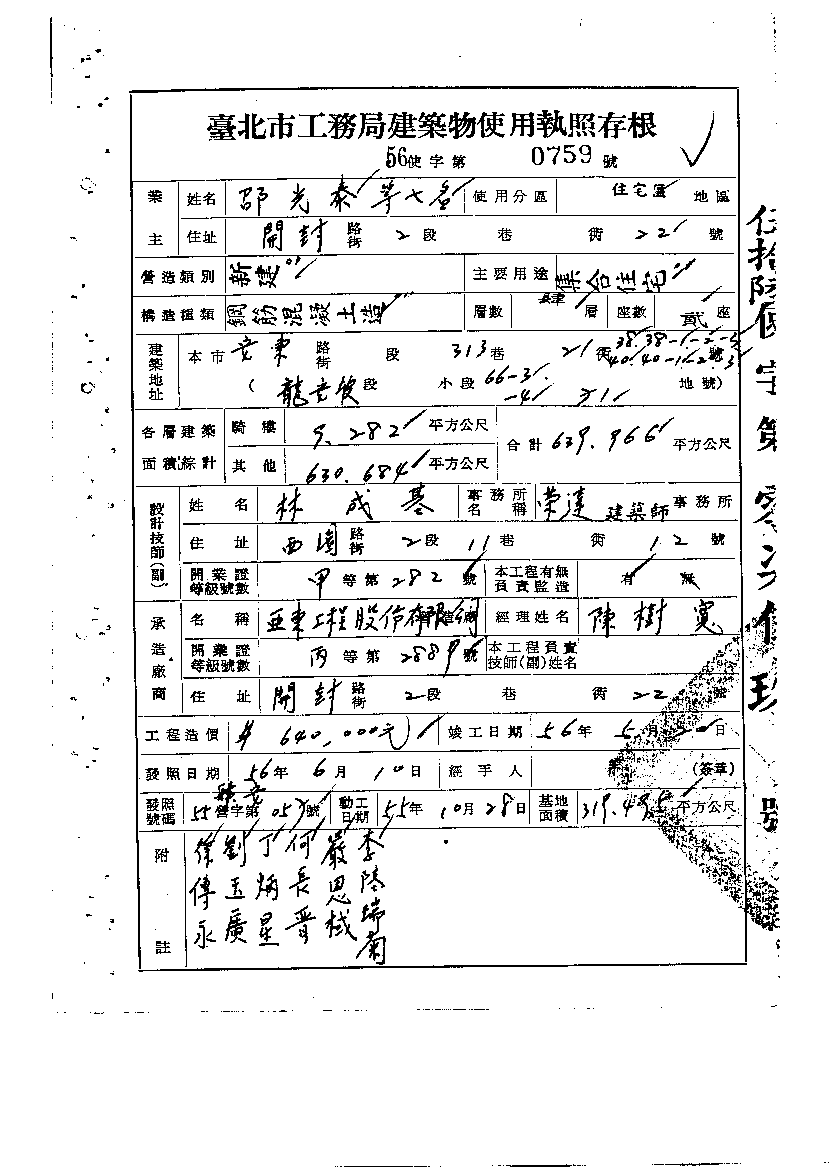 臺北市工務局建築物使用執照存根
56使字第 0759 號
業主 姓名 邵光泰等七名 使用分區 住宅區 地區
住址 開封 路街 2段 巷 街 22 號
營造類別 新建 主要用途 集合住宅
構造種類 鋼筋混凝土造 層數 層 座數 貳 座
建築地址 本市 安東 路街 段 313巷 21街 38.38-1-2-3 號
40.40-1-2-3
( 龍安坡段 小段 66-3 地號)
-4
各層建築面積綜計 騎樓 9.282 平方公尺 合計 639.966 平方公尺
其他 630.684 平方公尺
設計技師(副) 姓名 林成基 事務所名稱 榮達建築師事務所
住址 西園 路街 2段 11巷 街 12號
開業證等級號數 甲等第282號 本工程有無負責監造 有 無
承造廠商 名稱 亞東工程股份有限公司 經理姓名 陳樹寬
開業證等級號數 丙等第2889號 本工程負責技師(副)姓名
住址 開封 路街 2段 巷 街 22號
工程造價 $640,000元 竣工日期 56年5月20日
發照日期 56年6月10日 經手人 (簽章)
發照號碼 55營字第 號 動工日期 55年10月28日 基地面積 319.495平方公尺
附註
李陸瑞菊
嚴思棫
何長晉
丁炳星
劉玉廣
徐傳永
伍拾陸使字第零柒伍玖號